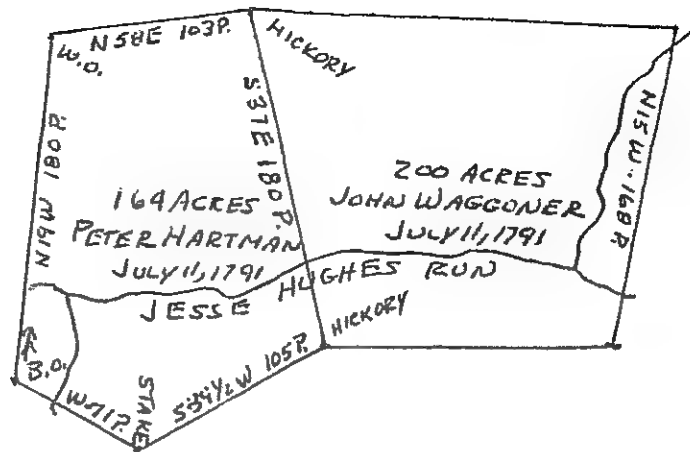 N58E 103P.
W.O.
HICKORY
N19W 180P.
S37E 180P.
N15W-168P.
164 ACRES
PETER HARTMAN
JULY 11, 1791
200 ACRES
JOHN WAGGONER
JULY 11, 1791
JESSE HUGHES RUN
HICKORY
B.O.
W-71P.
STAKE
S34½W 105P.